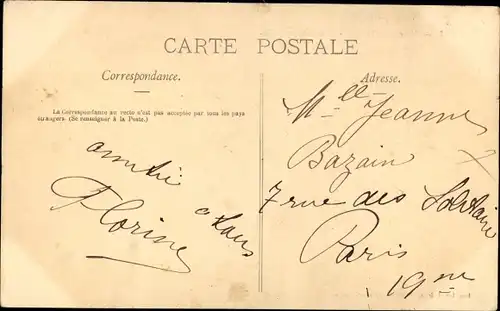 CARTE POSTALE
Correspondance.
La Correspondance au recto n'est pas acceptée par tous les pays
étrangers. (Se renseigner à la Poste.)
amitié
à tous
Florine
Adresse.
Mlle Jeanne
Bazain
7 rue des Solitaire
Paris
19me